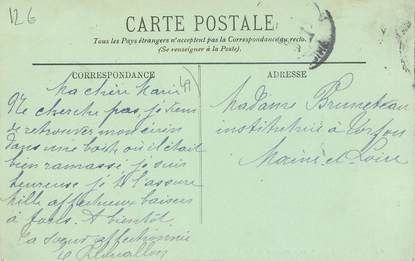 126
CARTE POSTALE
Tous les Pays étrangers n'acceptent pas la Correspondance au recto.
(Se renseigner à la Poste).
CORRESPONDANCE
Ma chère Marie
49
Ne cherche pas je viens
de retrouver mon écrin
dans une boîte où il était
bien ramassé je suis
heureuse je t'assure
Mille affectueux baisers
à tous. A bientôt
ta sœur affectionnée
ADRESSE
Madame Bruneteau
institutrice à Torfou
Maine et Loire